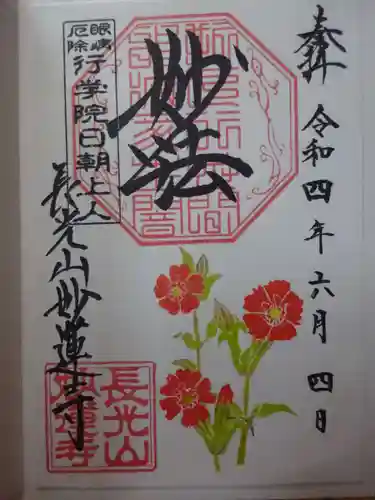 奉拝
令和四年六月四日
妙法
眼病
厄除
行学院日朝上人
長光山妙蓮寺
長光山
妙蓮寺